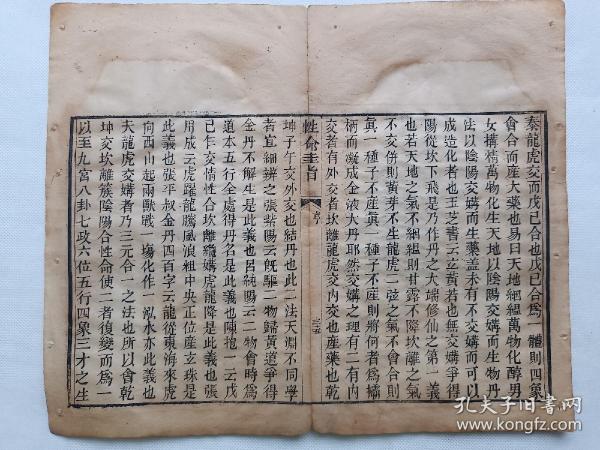 秦龍虎交而戊己合也戊己合為一體則四象
會合而産大藥也易曰天地絪緼萬物化醇男
女構精萬物化生天地以陰陽交媾而生物丹
法以陰陽交媾而生藥蓋未有不交媾而可以
成造化者也王芝書云玄黄若也無交媾爭得
陽從坎下飛是乃作丹之大端修仙之第一義
也若天地之氣不絪緼則甘露不降坎離之氣
不交併則黄芽不生龍虎二弦之氣不會合則
真一種子不産真一種子不産則將何者為擂
柄而凝成金液大丹耶然交媾之理有二有内
交者有外交者坎離龍虎交内交也産藥也乾
性命圭旨
序
坤子午交外交也結丹也此二法天淵不同學
者宜細辨之張紫陽云既驅二物歸黄道爭得
金丹不解生是此義也呂純陽云二物會時為
道本五行全處得丹名是此義也陳抱一云戊
己作交情性合坎離纔媾虎龍降是此義也張
用成云虎躍龍騰風浪粗中央正位産玄珠是
此義也張平叔金丹四百字云龍從東海來虎
向西山起兩獸戰一塲化作一泓水亦此義也
夫龍虎交媾者乃三元合一之法也所以會乾
坤交坎離簇陰陽合性命使二者復變而為一
以至九宮八卦七政六位五行四象三才之生
孔夫子旧书网
www.kongfz.com